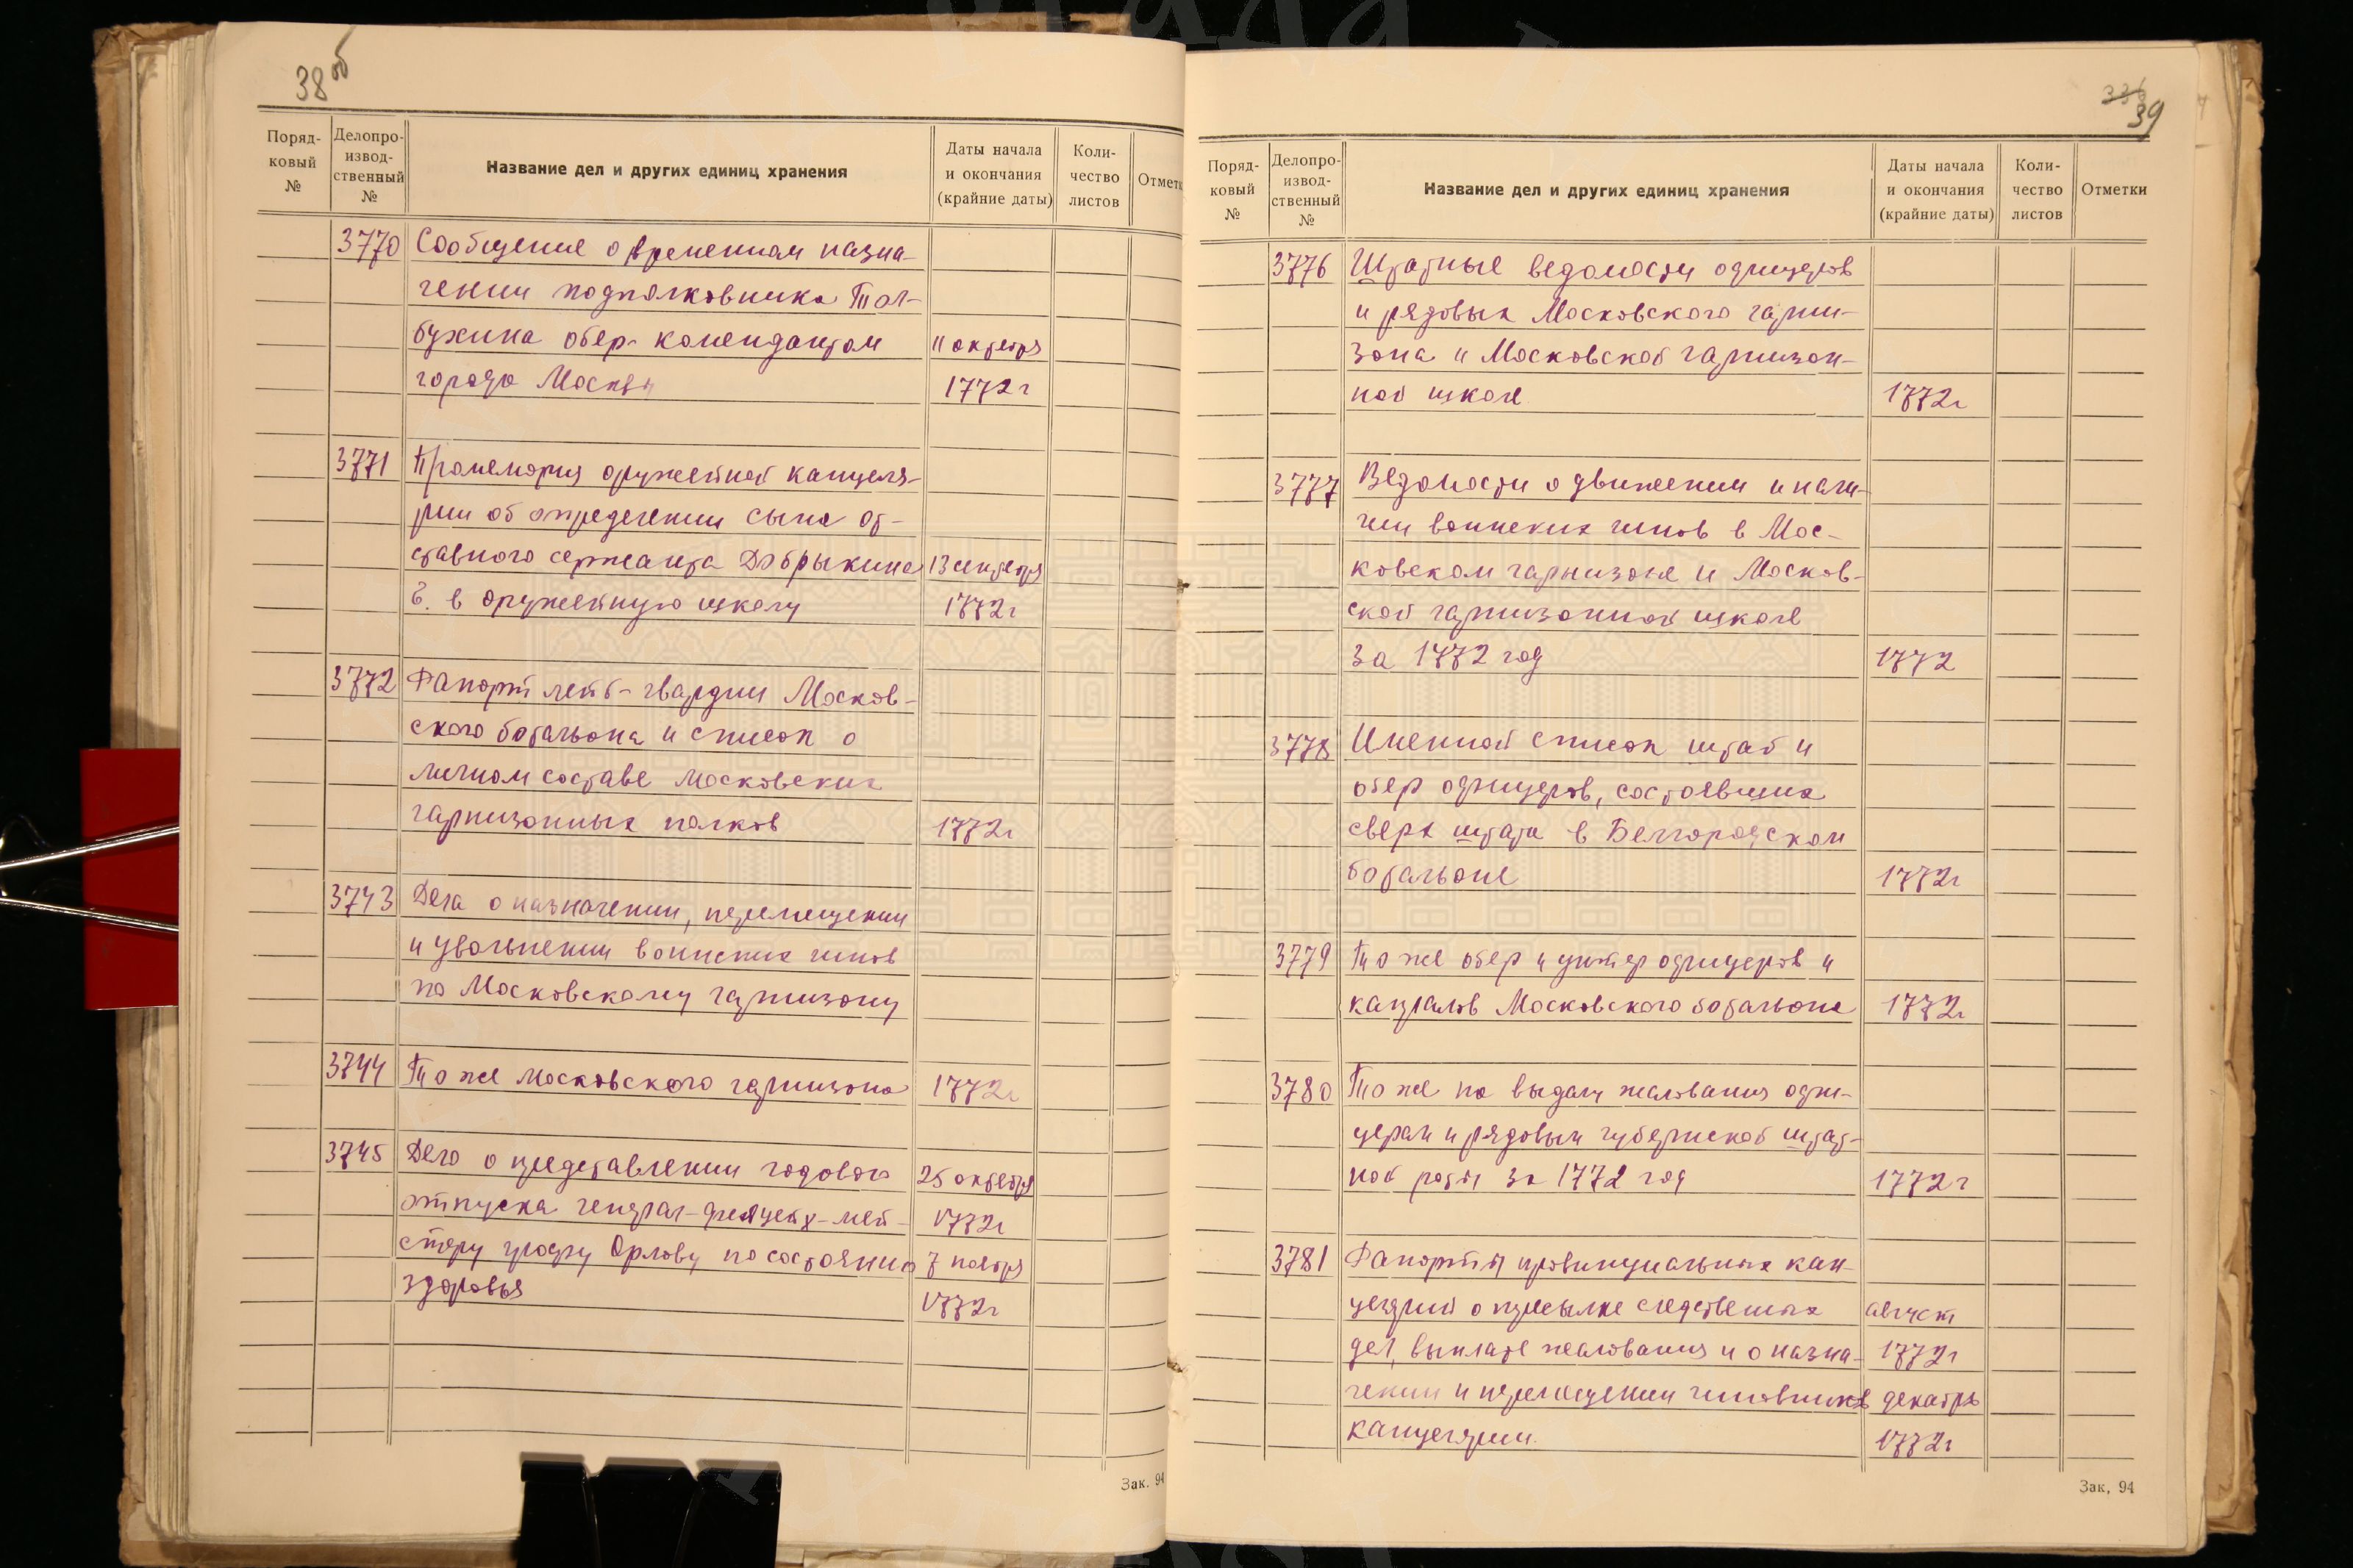 38 об
Поряд-
ковый
№
Делопро-
извод-
ственный
№
Название дел и других единиц хранения
Даты начала
и окончания
(крайние даты)
Коли-
чество
листов
Отметк
3770 Сообщение о временном назна-
чении подполковника Тол-
бухина обер-комендантом 11 октября
города Москвы 1772 г
3771 Промемория оружейной канцеля-
рии об определении сына от-
ставного сержанта Добрыкина 13 сентября
Е. в оружейную школу 1772 г
3772 Рапорт лейб-гвардии Москов-
ского батальона и список о
личном составе Московских
гарнизонных полков 1772 г
3743 Дела о назначении, перемещении
и увольнении воинских чинов
по Московскому гарнизону
3744 То же Московского гарнизона 1772 г
3745 Дело о представлении годового 25 октября
отпуска генерал-фельдцейх-мей- 1772 г
стеру графу Орлову по состоянию 7 ноября
здоровья 1772 г
Зак. 94
336
39
Поряд-
ковый
№
Делопро-
извод-
ственный
№
Название дел и других единиц хранения
Даты начала
и окончания
(крайние даты)
Коли-
чество
листов
Отметки
3776 Штатные ведомости офицеров
и рядовых Московского гарни-
зона и Московской гарнизон-
ной школе 1772 г
3777 Ведомости о движении и нали-
чии воинских чинов в Мос-
ковском гарнизоне и Москов-
ской гарнизонной школе
за 1772 год 1772
3778 Именной список штаб и
обер офицеров, состоявших
сверх штата в Белгородском
батальоне 1772 г
3779 То же обер и унтер офицеров и
капралов Московского батальона 1772 г
3780 То же на выдачу жалования офи-
церам и рядовым губернской штат-
ной роты за 1772 год 1772 г
3781 Рапорты провинциальных кан-
целярий о присылке следственных август
дел, выплате жалования и о назна- 1772 г
чении и перемещении чиновников декабрь
канцелярии. 1772 г
Зак. 94